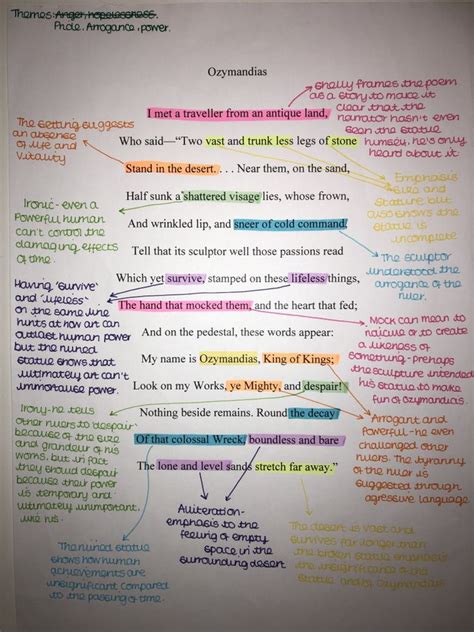 Themes: Anger, hopelessness.
Pride, Arrogance, power.
Ozymandias
Shelly frames the poem
as a story to make it
clear that the
narrator hasn't even
seen the statue
himself, he's only
heard about it
I met a traveller from an antique land,
The setting suggests
an absence
of life and
vitality
Who said—“Two vast and trunk less legs of stone
Stand in the desert. . . . Near them, on the sand,
Emphasis
size and
stature but
also shows the
statue is
incomplete
Half sunk a shattered visage lies, whose frown,
Ironic- even a
powerful human
can't control the
damaging effects
of time.
And wrinkled lip, and sneer of cold command,
Tell that its sculptor well those passions read
The sculptor
understood the
arrogance of the
ruler.
Which yet survive, stamped on these lifeless things,
Having 'survive'
and 'lifeless'
on the same line
hints at how art can
outlast human power
but the ruined
statue shows that
ultimately art can't
immortalise power.
The hand that mocked them, and the heart that fed;
Mock can mean to
ridicule or to create
a likeness of
something - prehaps
the sculpture intended
his statue to make
fun of ozymandias.
And on the pedestal, these words appear:
My name is Ozymandias, King of Kings;
Look on my Works, ye Mighty, and despair!
Irony- he tells
other rulers to 'despair'
because of the size
and grandeur of his
works. but in fact
they should despair
because their power
is temporary and
ultimately unimportant.
like his.
Nothing beside remains. Round the decay
Arrogant and
Powerful - he even
challenged other
rulers. The tyranny
of the ruler is
suggested through
agressive language
Of that colossal Wreck, boundless and bare
The lone and level sands stretch far away.”
Aliteration-
emphasis to the
feeling of empty
space in the
surrounding desert
The desert is vast and
survives far longer than
the broken statue emphasis
the insignificance of the
statue and ozymandias
The ruined statue
shows how human
achievements are
insignificant compared
to the passing of time.